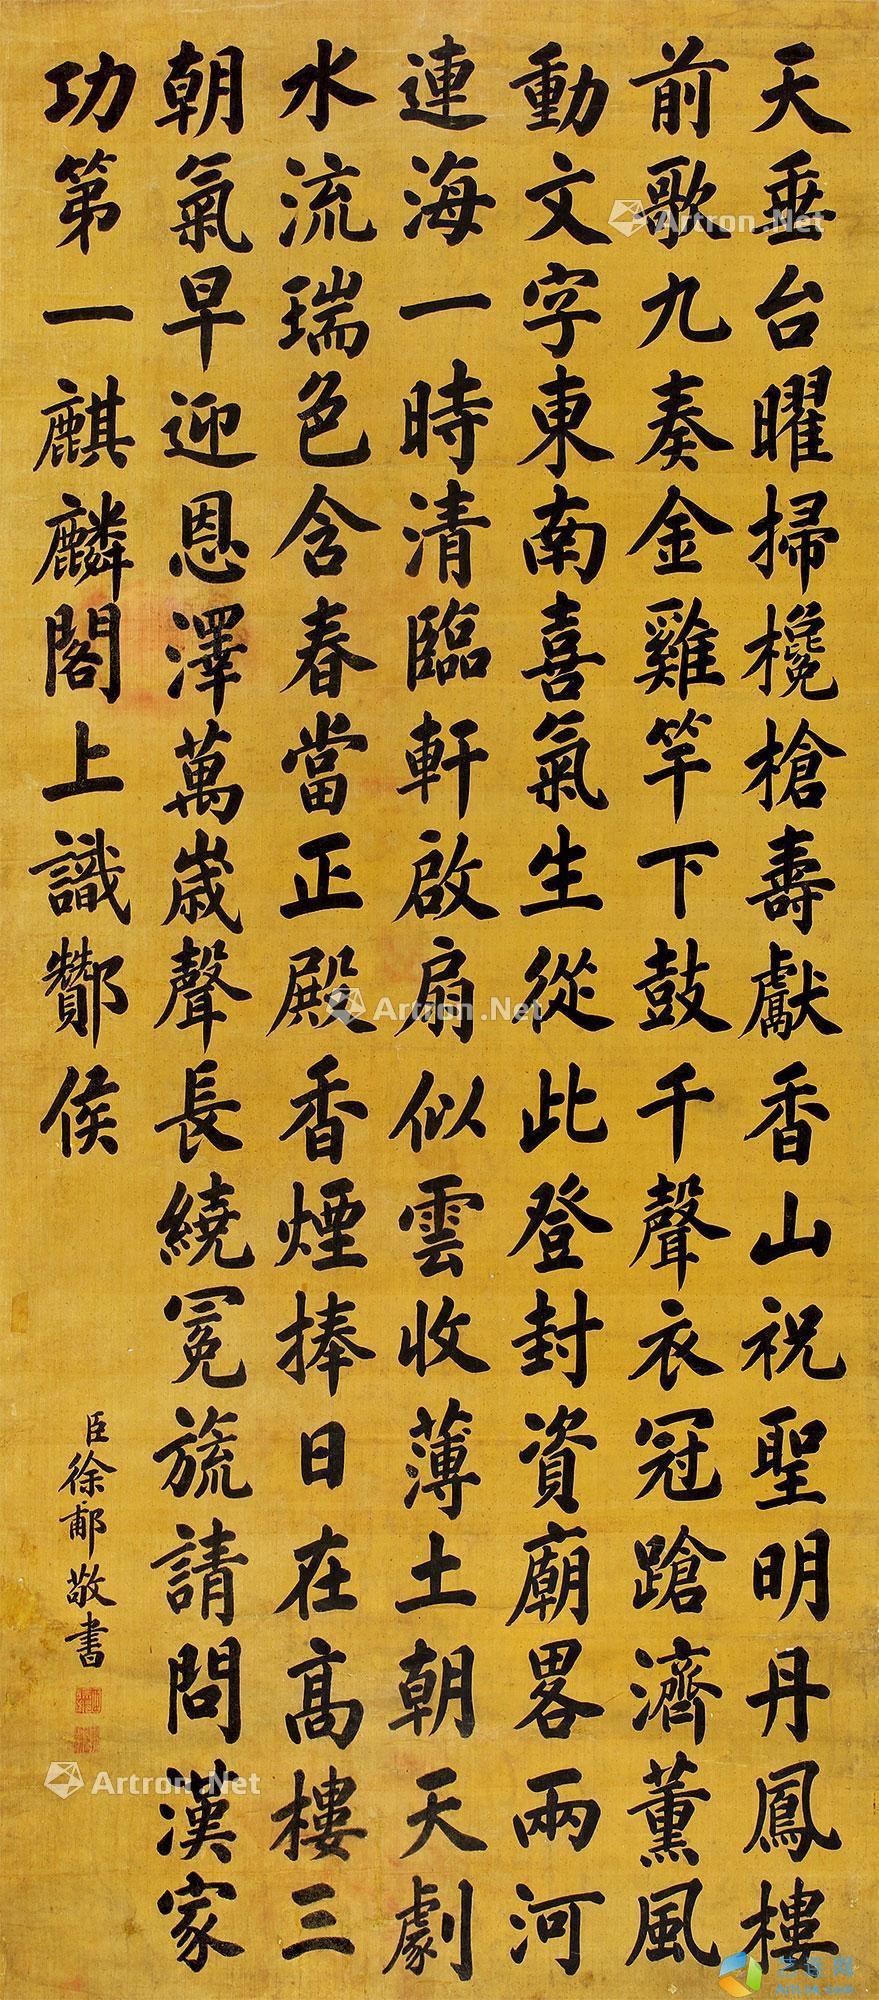 天垂台曜掃欃槍壽獻香山祝聖明丹鳳樓
前歌九奏金雞竿下鼓千聲衣冠蹌濟薰風
動文字東南喜氣生從此登封資廟畧兩河
連海一時清臨軒啟扇似雲收薄土朝天劇
水流瑞色含春當正殿香煙捧日在高樓三
朝氣早迎恩澤萬歲聲長繞冕旒請問漢家
功第一麒麟閣上識酇侯
臣徐郙敬書
Artron.Net
Artron.Net
Artron.Net